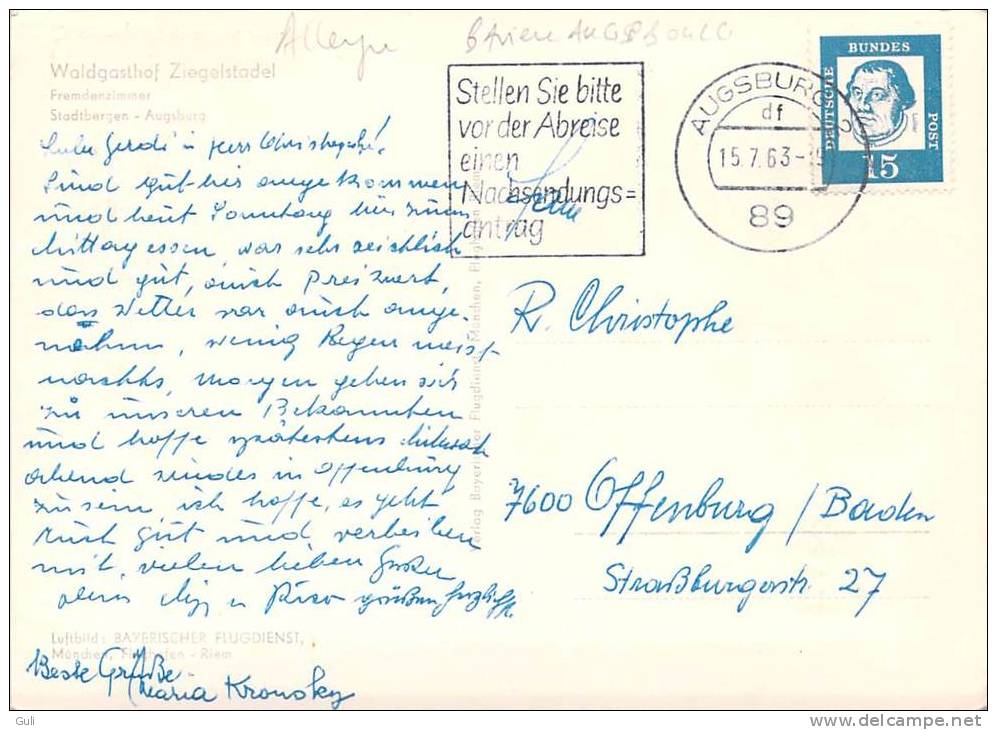 BAVIERE AUGSBOURG
Waldgasthof Ziegelstadel
Fremdenzimmer
Stadtbergen - Augsburg
Liebe Gerdi u Herr Christophe!
Sind gut hier angekommen
und heut Sonntag hier zum
Mittagessen, war sehr reichlich
und gut, auch Preiswert,
das Wetter war auch ange-
nehm, wenig Regen meist
nachts, Morgen gehen wir
zu unseren Bekannten
und hoffe spätestens Mittwoch
abend in Offenburg
zu sein, ich hoffe, es geht
Euch gut und verbleiben
mit vielen lieben Grüßen
grüßen herzlich
Luftbild: BAYERISCHER FLUGDIENST,
München, Flughafen - Riem
Beste Grüße
Maria Kronsky
Verlag Bayerischer Flugdienst, München, Flughafen
Stellen Sie bitte
vor der Abreise
einen
Nachsendungs=
antrag
AUGSBURG 2
df
15.7.63-
89
DEUTSCHE BUNDES POST
15
R. Christophe
7600 Offenburg / Baden
Straßburgerstr. 27
Guli
delcampe.net